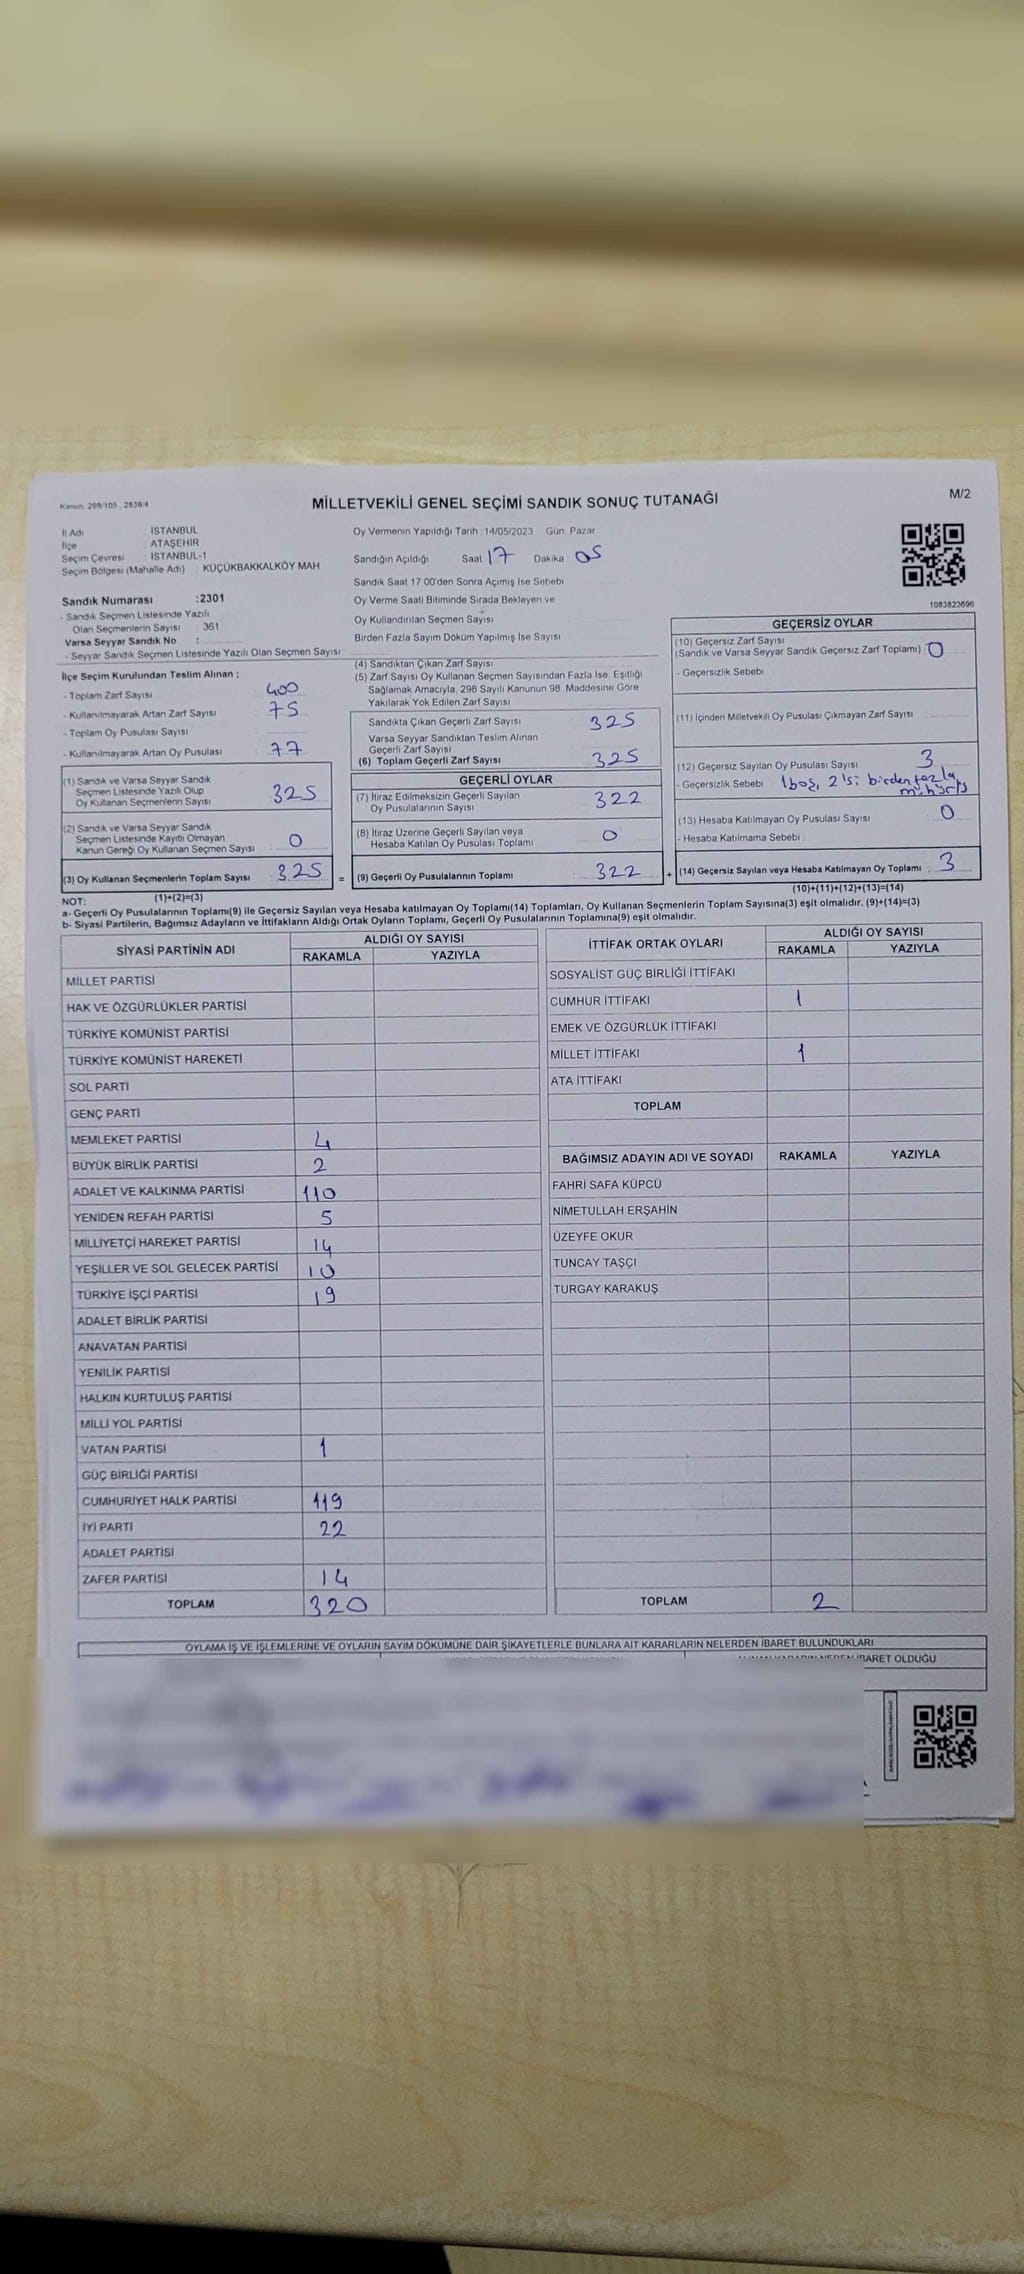 Kanun: 298/105 , 2839/4
MİLLETVEKİLİ GENEL SEÇİMİ SANDIK SONUÇ TUTANAĞI
M/2
İl Adı : İSTANBUL
İlçe : ATAŞEHİR
Seçim Çevresi : İSTANBUL-1
Seçim Bölgesi (Mahalle Adı) : KÜÇÜKBAKKALKÖY MAH
Sandık Numarası :2301
- Sandık Seçmen Listesinde Yazılı
Olan Seçmenlerin Sayısı : 361
Varsa Seyyar Sandık No :
- Seyyar Sandık Seçmen Listesinde Yazılı Olan Seçmen Sayısı :
Oy Vermenin Yapıldığı Tarih :14/05/2023 Gün: Pazar
Sandığın Açıldığı Saat 17 Dakika 05
Sandık Saat 17:00'den Sonra Açımış İse Sebebi
Oy Verme Saati Bitiminde Sırada Bekleyen ve
Oy Kullandırılan Seçmen Sayısı
Birden Fazla Sayım Döküm Yapılmış İse Sayısı
1083823696
İlçe Seçim Kurulundan Teslim Alınan ;
- Toplam Zarf Sayısı : 400
- Kullanılmayarak Artan Zarf Sayısı : 75
- Toplam Oy Pusulası Sayısı :
- Kullanılmayarak Artan Oy Pusulası : 77
(1) Sandık ve Varsa Seyyar Sandık
Seçmen Listesinde Yazılı Olup
Oy Kullanan Seçmenlerin Sayısı : 325
(2) Sandık ve Varsa Seyyar Sandık
Seçmen Listesinde Kayıtlı Olmayan
Kanun Gereği Oy Kullanan Seçmen Sayısı : 0
(3) Oy Kullanan Seçmenlerin Toplam Sayısı : 325 =
(1)+(2)=(3)
(4) Sandıktan Çıkan Zarf Sayısı
(5) Zarf Sayısı Oy Kullanan Seçmen Sayısından Fazla İse, Eşitliği
Sağlamak Amacıyla, 298 Sayılı Kanunun 98. Maddesine Göre
Yakılarak Yok Edilen Zarf Sayısı
Sandıkta Çıkan Geçerli Zarf Sayısı : 325
Varsa Seyyar Sandıktan Teslim Alınan
Geçerli Zarf Sayısı
(6) Toplam Geçerli Zarf Sayısı : 325
GEÇERLİ OYLAR
(7) İtiraz Edilmeksizin Geçerli Sayılan
Oy Pusulalarının Sayısı : 322
(8) İtiraz Üzerine Geçerli Sayılan veya
Hesaba Katılan Oy Pusulası Toplamı : 0
(9) Geçerli Oy Pusulalarının Toplamı : 322 +
GEÇERSİZ OYLAR
(10) Geçersiz Zarf Sayısı
(Sandık ve Varsa Seyyar Sandık Geçersiz Zarf Toplamı) : 0
- Geçersizlik Sebebi :
(11) İçinden Milletvekili Oy Pusulası Çıkmayan Zarf Sayısı :
(12) Geçersiz Sayılan Oy Pusulası Sayısı : 3
- Geçersizlik Sebebi : 1 boş, 2'si birden fazla
mühürlü
(13) Hesaba Katılmayan Oy Pusulası Sayısı : 0
- Hesaba Katılmama Sebebi :
(14) Geçersiz Sayılan veya Hesaba Katılmayan Oy Toplamı : 3
(10)+(11)+(12)+(13)=(14)
NOT:
a- Geçerli Oy Pusulalarının Toplamı(9) ile Geçersiz Sayılan veya Hesaba katılmayan Oy Toplamı(14) Toplamları, Oy Kullanan Seçmenlerin Toplam Sayısına(3) eşit olmalıdır. (9)+(14)=(3)
b- Siyasi Partilerin, Bağımsız Adayların ve İttifakların Aldığı Ortak Oyların Toplamı, Geçerli Oy Pusulalarının Toplamına(9) eşit olmalıdır.
SİYASİ PARTİNİN ADI ALDIĞI OY SAYISI
RAKAMLA YAZIYLA
MİLLET PARTİSİ
HAK VE ÖZGÜRLÜKLER PARTİSİ
TÜRKİYE KOMÜNİST PARTİSİ
TÜRKİYE KOMÜNİST HAREKETİ
SOL PARTİ
GENÇ PARTİ
MEMLEKET PARTİSİ 4
BÜYÜK BİRLİK PARTİSİ 2
ADALET VE KALKINMA PARTİSİ 110
YENİDEN REFAH PARTİSİ 5
MİLLİYETÇİ HAREKET PARTİSİ 14
YEŞİLLER VE SOL GELECEK PARTİSİ 10
TÜRKİYE İŞÇİ PARTİSİ 19
ADALET BİRLİK PARTİSİ
ANAVATAN PARTİSİ
YENİLİK PARTİSİ
HALKIN KURTULUŞ PARTİSİ
MİLLİ YOL PARTİSİ
VATAN PARTİSİ 1
GÜÇ BİRLİĞİ PARTİSİ
CUMHURİYET HALK PARTİSİ 119
İYİ PARTİ 22
ADALET PARTİSİ
ZAFER PARTİSİ 14
TOPLAM 320
İTTİFAK ORTAK OYLARI ALDIĞI OY SAYISI
RAKAMLA YAZIYLA
SOSYALİST GÜÇ BİRLİĞİ İTTİFAKI
CUMHUR İTTİFAKI 1
EMEK VE ÖZGÜRLÜK İTTİFAKI
MİLLET İTTİFAKI 1
ATA İTTİFAKI
TOPLAM
BAĞIMSIZ ADAYIN ADI VE SOYADI RAKAMLA YAZIYLA
FAHRİ SAFA KÜPCÜ
NİMETULLAH ERŞAHİN
ÜZEYFE OKUR
TUNCAY TAŞÇI
TURGAY KARAKUŞ
TOPLAM 2
OYLAMA İŞ VE İŞLEMLERİNE VE OYLARIN SAYIM DÖKÜMÜNE DAİR ŞİKAYETLERLE BUNLARA AİT KARARLARIN NELERDEN İBARET BULUNDUKLARI
İBARET OLDUĞU